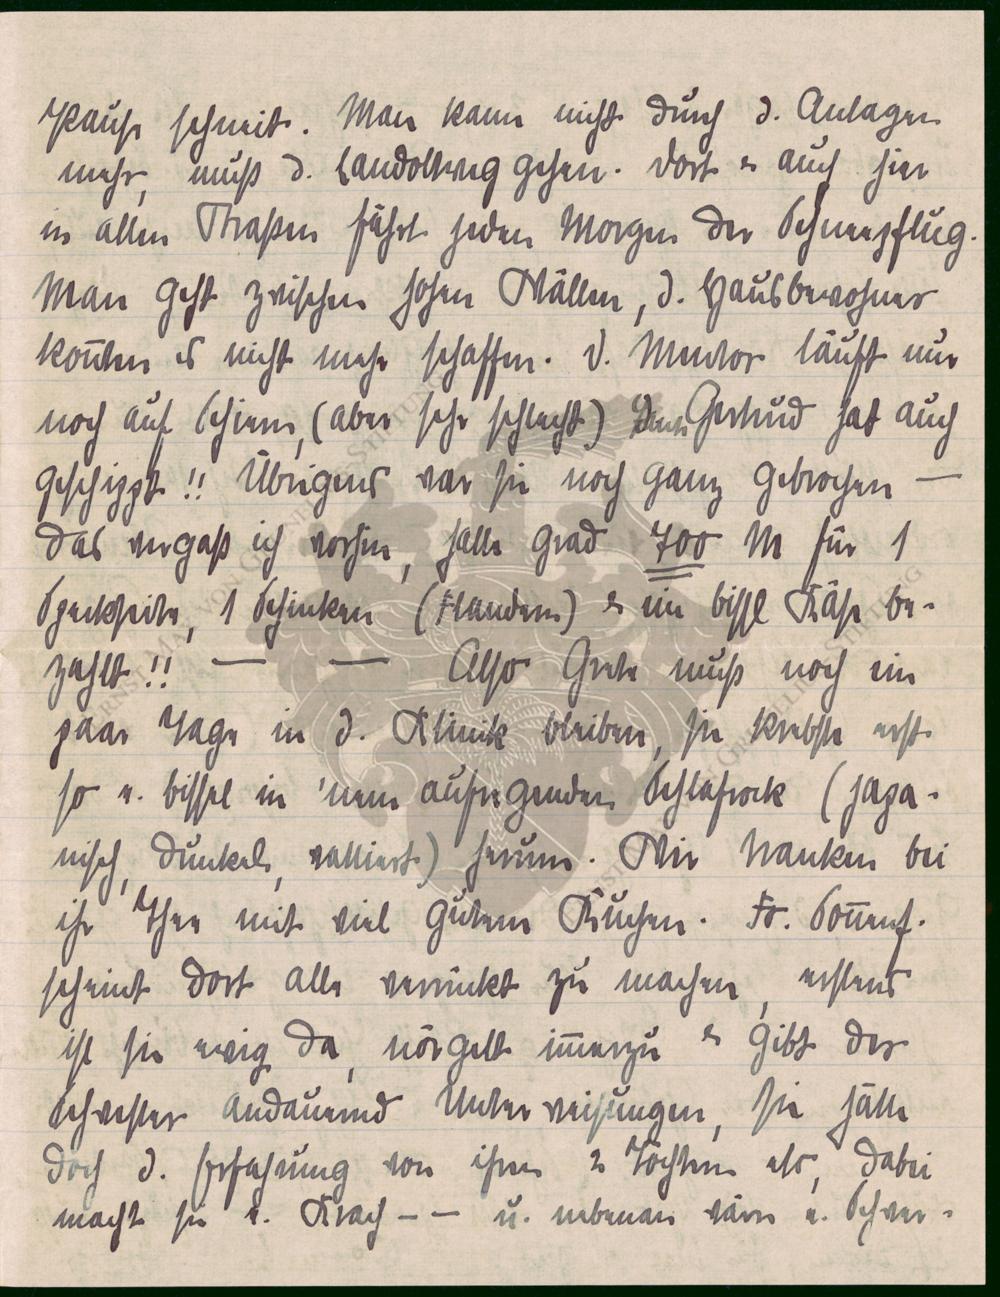 Pause schneit. Man kann nicht durch d. Anlagen
mehr, muß d. Landoltweg gehen. Dort & auch hier
in allen Straßen fährt jeden Morgen der Schneepflug.
Man geht zwischen hohen Wällen, d. Hausbewohner
kon̄ten es nicht mehr schaffen. D. läuft nur
noch auf Schiern, (aber sehr schlecht) Gertrud hat auch
geschippt!! Übrigens war sie noch ganz gebrochen —
das vergaß ich vorhin, hatte grad 700 M für 1
Speckseite, 1 Schinken (Flandern) & ein bissl Käse be-
zahlt!! — — Also Grete muß noch ein
paar Tage in d. Klinik bleiben, sie krebste erst
so e. bissel in 'nem aufregenden Schlafrock (japa-
nisch, dunkel, wattiert) herum. Wir tranken bei
ihr Thee mit viel gutem Kuchen. Fr. Son̄enf.
scheint dort alle verrückt zu machen, erstens
ist sie ewig da, nörgelt im̄erzu & gibt der
Schwester andauernd Unterweisungen, sie hätte
doch d. Erfahrung von ihren 2 Töchtern etc, dabei
macht sie e. Krach — — u. nebenan wäre e. Schwer-
ERNST MAX VON GRUNELIUS-STIFTUNG